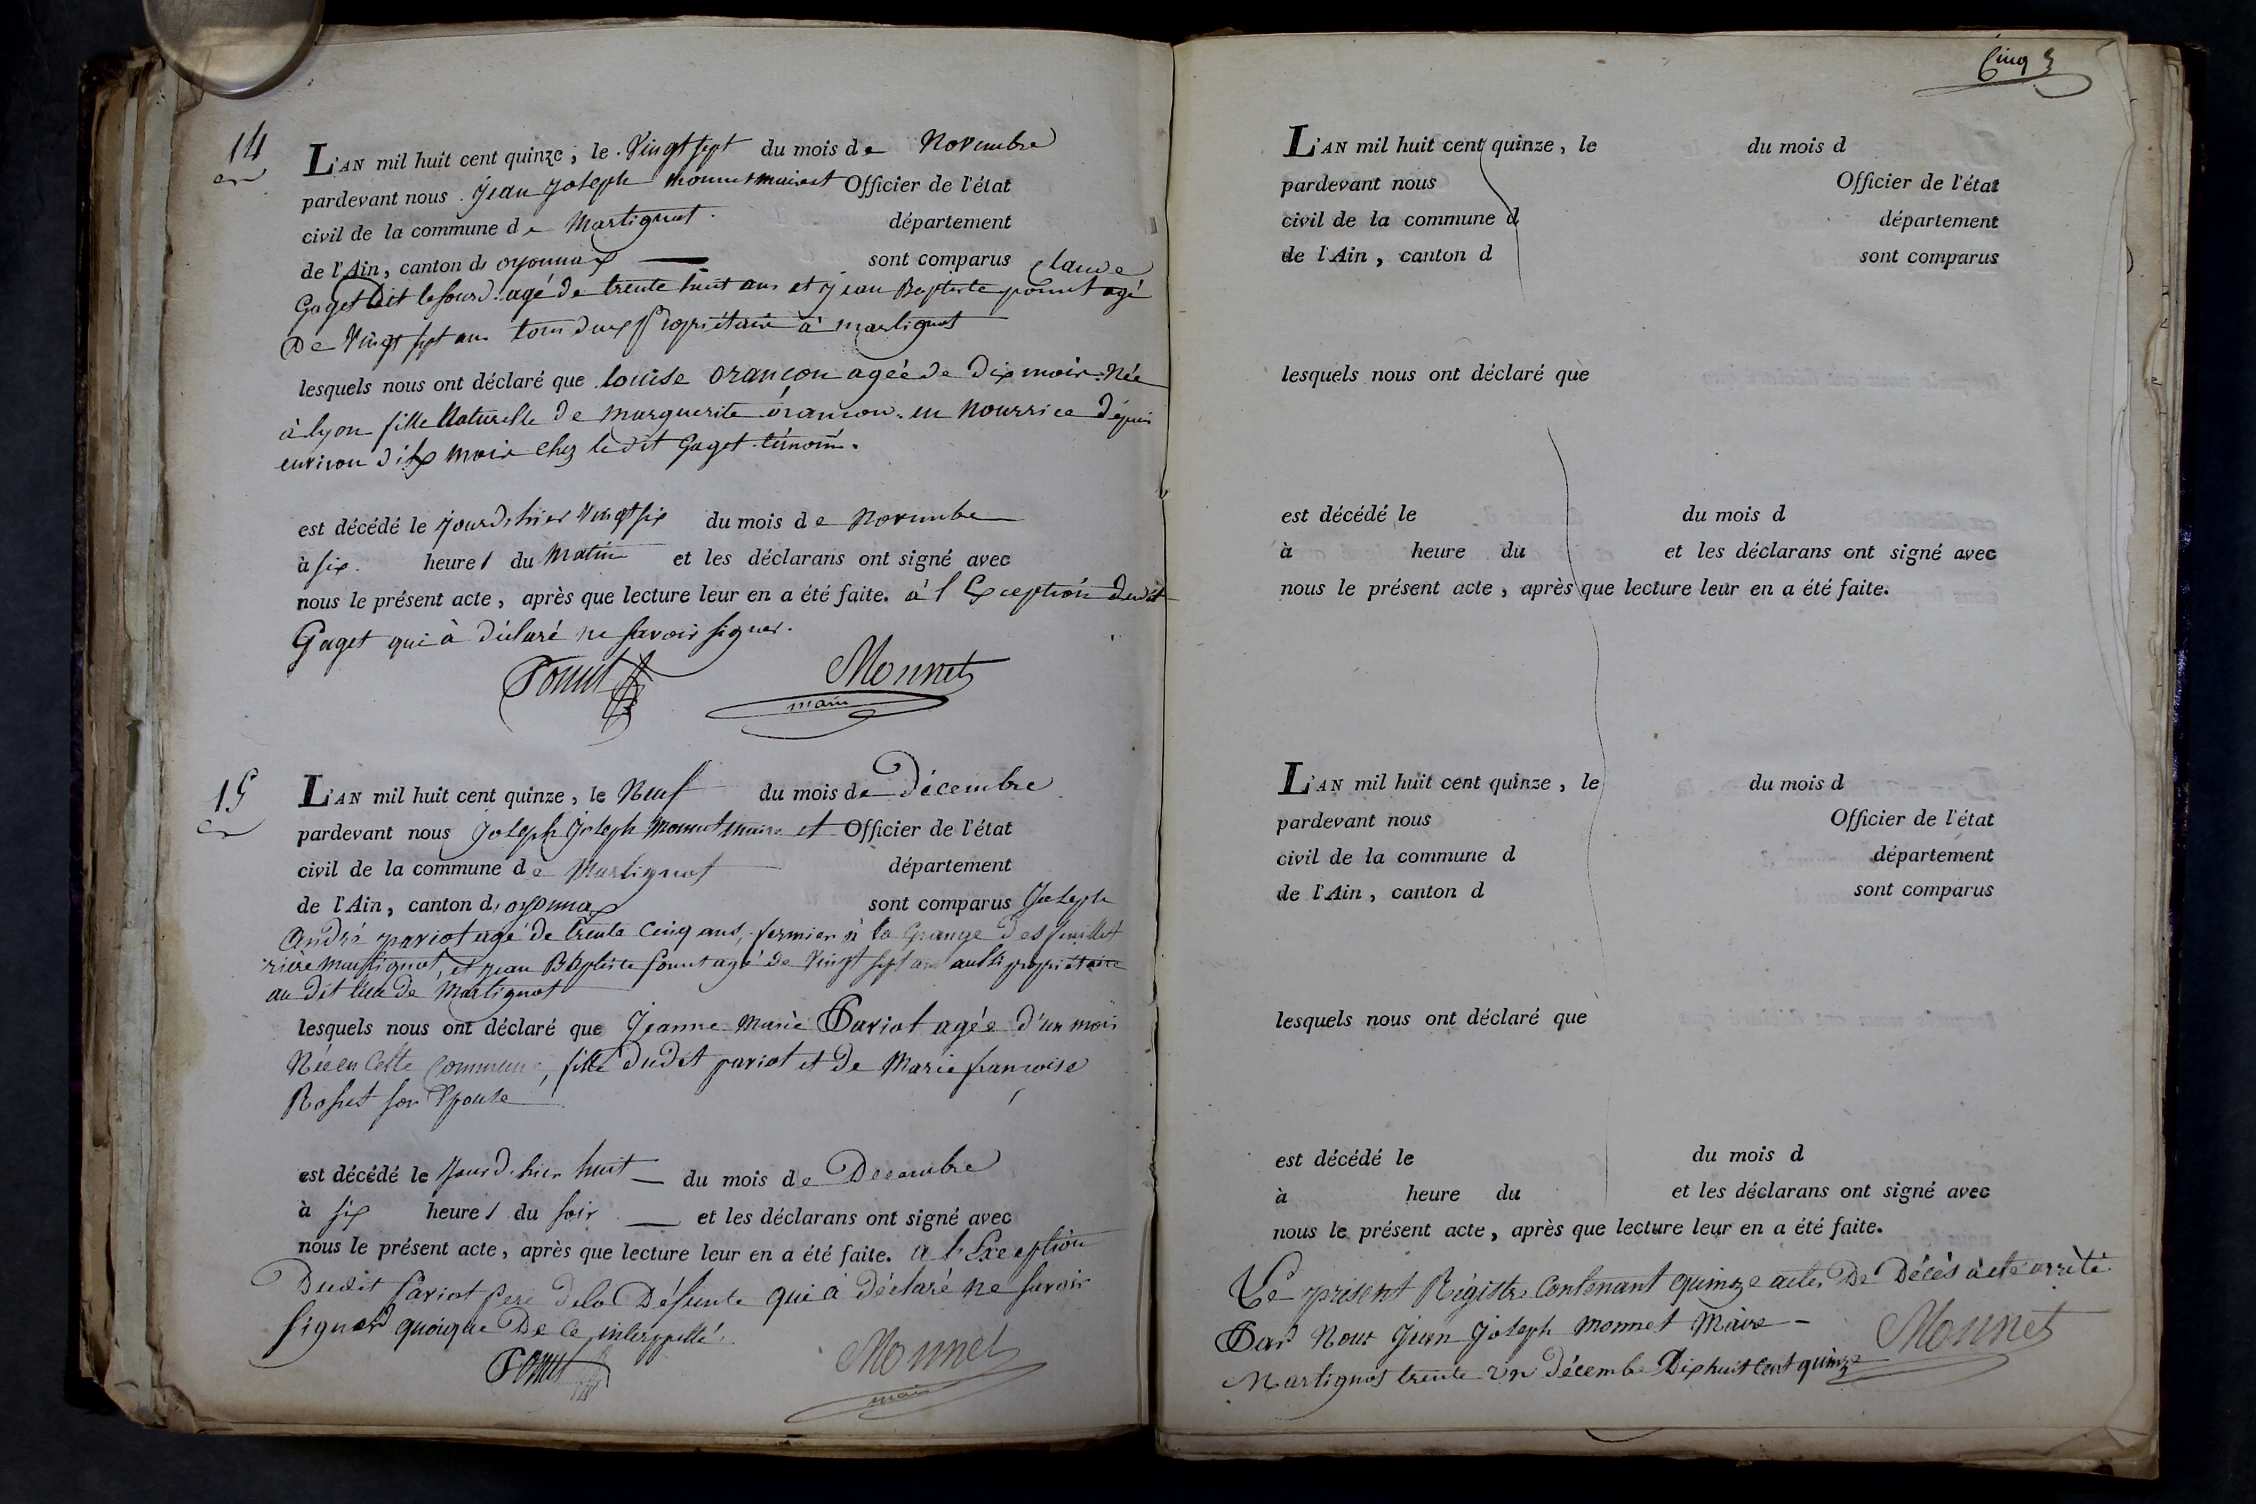 14
L'AN mil huit cent quinze, le vingt sept du mois de Novembre
pardevant nous Jean Joseph monnet maire et Officier de l'état
civil de la commune de Martignat département
de l'Ain, canton d oyonnax sont comparus Claude
Gaget Dit lesourd agé de trente huit ans et jean Baptiste ponnet agé
De Vingt sept ans tous deux propriétaire à martignat
lesquels nous ont déclaré que louise orancon agée de dix mois Née
à lyon fille Naturelle de marguerite orancon en Nourrice dépuis
environ dix mois chez le dit Gaget témoin.
est décédé le jourdhier vingt six du mois de Novembre
à six heures du Matin et les déclarans ont signé avec
nous le présent acte, après que lecture leur en a été faite. à l'Exception dudit
Gaget qui à déclaré ne savoir signer.
Ponnet Monnet
maire
15
L'AN mil huit cent quinze, le Neuf du mois de Décembre
pardevant nous Joseph Joseph Monnet maire et Officier de l'état
civil de la commune de Martignat département
de l'Ain, canton d oyonnax sont comparus Joseph
André pariot agé de trente cinq ans, fermier à la Grange des
rière Martignat, et jean Baptiste ponnet agé de Vingt sept ans aussi propriétaire
au dit lieu de Martignat
lesquels nous ont déclaré que Jeanne Marie Pariot agée d'un mois
Née en cette commune, fille dudit pariot et de Marie francoise
Rosset son Epouse
est décédé le Jourd'hier huit du mois de Décembre
à six heures du soir et les déclarans ont signé avec
nous le présent acte, après que lecture leur en a été faite. a l'Exception
Dudit Pariot pere dela Défunte qui à déclaré ne savoir
signer quoique De ce interppellé.
Ponnet Monnet
maire
Cinq 5
L'AN mil huit cent quinze, le du mois d
pardevant nous Officier de l'état
civil de la commune d département
de l'Ain, canton d sont comparus
lesquels nous ont déclaré que
est décédé le du mois d
à heure du et les déclarans ont signé avec
nous le présent acte, après que lecture leur en a été faite.
L'AN mil huit cent quinze, le du mois d
pardevant nous Officier de l'état
civil de la commune d département
de l'Ain, canton d sont comparus
lesquels nous ont déclaré que
est décédé le du mois d
à heure du et les déclarans ont signé avec
nous le présent acte, après que lecture leur en a été faite.
Le présent Régistre Contenant quinze actes De Décès à été arrèté
Par Nous Jean Joseph Monnet Maire
Martignat trente un décembre Dix huit Cent quinze Monnet